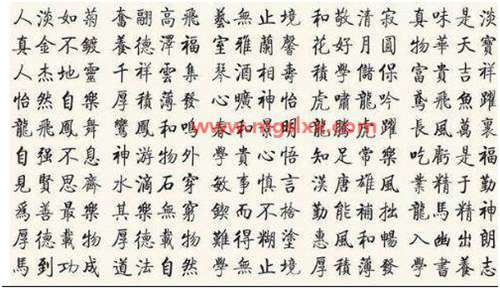 人淡如菊 奮翮高飛 藝無止境 和敬清寂 真味是淡
真金不鍍 養德澤福 室雅蘭馨 花好月圓 物華天寶
人杰地靈 千祥雲集 琴酒相壽 積學儲保 富貴吉祥
怡然自樂 厚積薄發 心曠神怡 虎嘯龍吟 鳶飛魚躍
龍飛鳳舞 鸞鳳和鳴 和景明 龍騰虎躍 長風萬裏
自强不息 神游物外 學貴心悟 知足常樂 吃虧是福
見賢思齊 水滴石穿 敏事慎言 漢唐雄風 業精于勤
爲善最樂 其樂無窮 鍥而不捨 勤能補拙 龍馬精神
厚德載物 厚德載物 難得糊塗 惠風和暢 入幽出朗
馬到功成 道法自然 學無止境 厚積薄發 學書養志